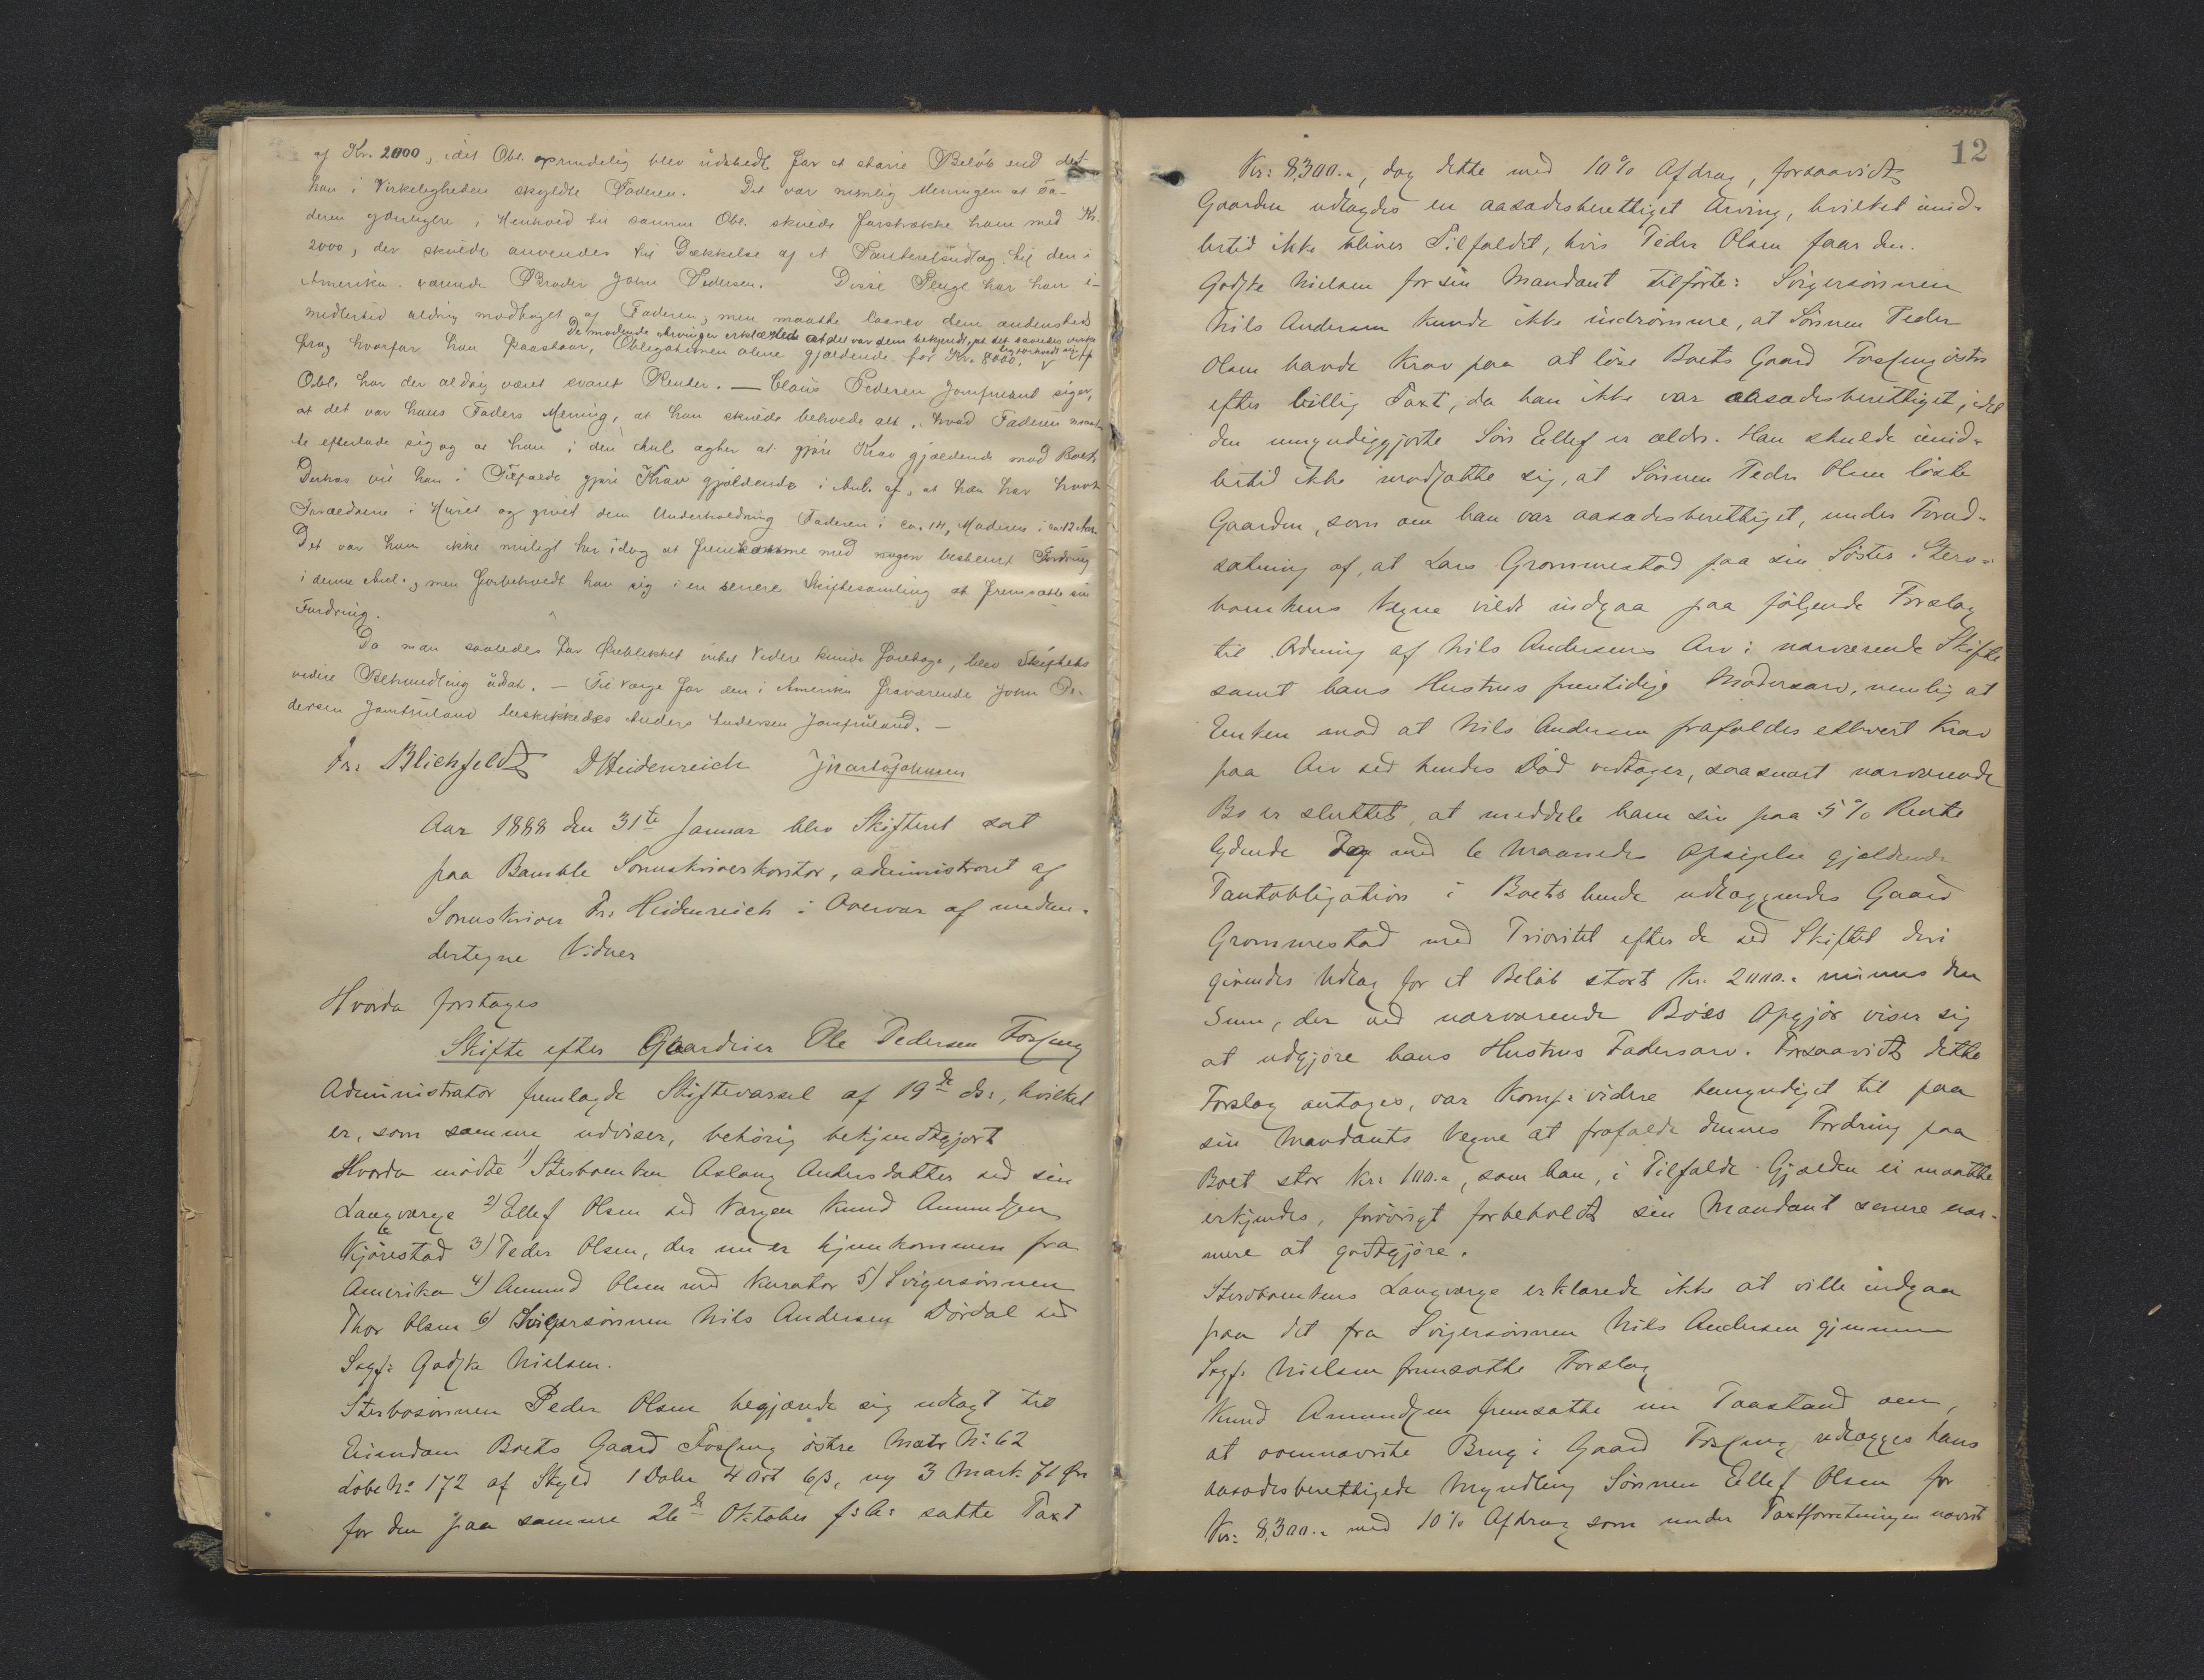 af Kr. 2000, idet Obl. oprindelig blev udstedt for et større Beløb end det
han i Virkeligheden skyldte Faderen. Det var nemlig Meningen at Fa-
deren yderligere, i Henhold til samme Obl. skulde forstrække ham med Kr.
2000, der skulde anvendes til Dækkelse af et Panterets til den i
Amerika værende Broder John Pedersen. Disse Penge har han i-
midlertid aldrig modtaget af Faderen, men maatte laane dem andensteds
De mødende Arvinger erklærede at det var dem bekjendt, at det saaledes
fra, hvorfor han paastaar, Obligationen alene gjældende for Kr. 8000.
Obl. har der aldrig været svaret Renter. — Claus Pedersen Jomfruland siger,
at det var hans Faders Mening, at han skulde beholde alt, hvad Faderen maat-
te efterlade sig og at han i den Anl. agter at gjøre Krav gjældende mod Boet.
Derhos vil han i Tilfælde gjøre Krav gjældende i Anl. af, at han har havt
Forældrene i Huset og givet dem Underholdning Faderen i ca. 14, Moderen i ca. 12 Aar.
Det var ham ikke muligt her idag at fremkomme med nogen bestemt Fordring
i denne Anl., men forbeholdt han sig i en senere Skiftesamling at fremsætte sin
Fordring.
Da man saaledes for Øieblikket intet Videre kunde foretage, blev Skiftets
videre Behandling udsat. — Til Værge for den i Amerika fraværende John Pe-
dersen Jomfruland beskikkedes Anders Andersen Jomfruland. —
Fr: Blichfeldt D Heidenreich Johnsen
Aar 1888 den 31te Januar blev Skifteret sat
paa Bamble Sorenskriverkontor, administreret af
Sorenskriver Fr: Heidenreich i Overvær af neden-
dertegne Vidner
Hvorda foretoges
Skifte efter Gaardeier Ole Pedersen Fossing
Administrator fremlagde Skiftevarsel af 19de ds:, hvilket
er, som samme udviser, behørig bekjendtgjort
Hvorda mødte 1) Sterboenken Aslaug Andersdatter ved sin
Laugværge 2) Ellef Olsen ved Værgen Knud Amundsen
Kjørestad 3) Peder Olsen, der nu er hjemkommen fra
Amerika 4) Amund Olsen med Kurator 5) Svigersønnen
Thor Olsen 6) Svigersønnen Nils Andersen Dørdal ved
Sagf: Godske Nielsen.
Sterbosønnen Peder Olsen begjærede sig udlagt til
Eiendom Boets Gaard Fossing østre Matr No: 62
Løbe No: 172 af Skyld 1 Daler 4 Ort 6 β, ny 3 Mark 71 Øre
for den paa samme 26de Oktober f: A: satte Taxt
12
Kr: 8,300.-, dog dette med 10% Afdrag, forsaavidt
Gaarden udlagdes en aasædesberettiget Arving, hvilket imid-
lertid ikke bliver Tilfældet, hvis Peder Olsen faar den.
Godske Nielsen for sin Mandant tilførte: Svigersønnen
Nils Andersen kunde ikke indrømme, at Sønnen Peder
Olsen havde Krav paa at løse Boets Gaard Fossing østre
efter billig Taxt, da han ikke var aasædesberettiget, idet
den umyndiggjorte Søn Ellef er ældre. Han skulde imid-
lertid ikke modsætte sig, at Sønnen Peder Olsen løste
Gaarden, som om han var aasædesberettiget, under Forud-
sætning af, at Lars Grommestad paa sin Søster Sterv-
boenkens Vegne vilde indgaa paa følgende Forslag
til Ordning af Nils Andersens Arv i nærværende Skifte
samt hans Hustrus fremtidige Mødrearv, nemlig at
Enken mod at Nils Andersen frafalder ethvert Krav
paa Arv ved hendes Død vedtager, saasnart nærværende
Bo er sluttet, at meddele ham sin paa 5% Rente
lydende og med 6 Maaneders Opsigelse gjældende
Pantobligation i Boets hende udlæggendes Gaard
Grommestad med Prioritet efter de ved Skiftet deri
givendes Udlæg for et Beløb stort Kr. 2000.- minus den
Sum, der ved nærværende Bo's Opgjør viser sig
at udgjøre hans Hustrus Fadersarv. Forsaavidt dette
Forslag antages, var Komp: videre bemyndiget til paa
sin Mandants Vegne at frafalde dennes Fordring paa
Boet stor Kr: 100.-, som han, i Tilfælde Gjælden ei maatte
erkjendes, forøvrigt forbeholdt sin Mandant senere nær-
mere at godtgjøre.
Stervboenkens Laugværge erklærede ikke at ville indgaa
paa det fra Svigersønnen Nils Andersen gjennem
Sagf: Nielsen fremsatte Forslag
Knud Amundsen fremsatte nu Paastand om,
at ovennævnte Brug i Gaard Fossing udlægges hans
aasædesberettigede Myndling Sønnen Ellef Olsen for
Kr: 8,300.- med 10% Afdrag som under Taxtforretningen nævnt